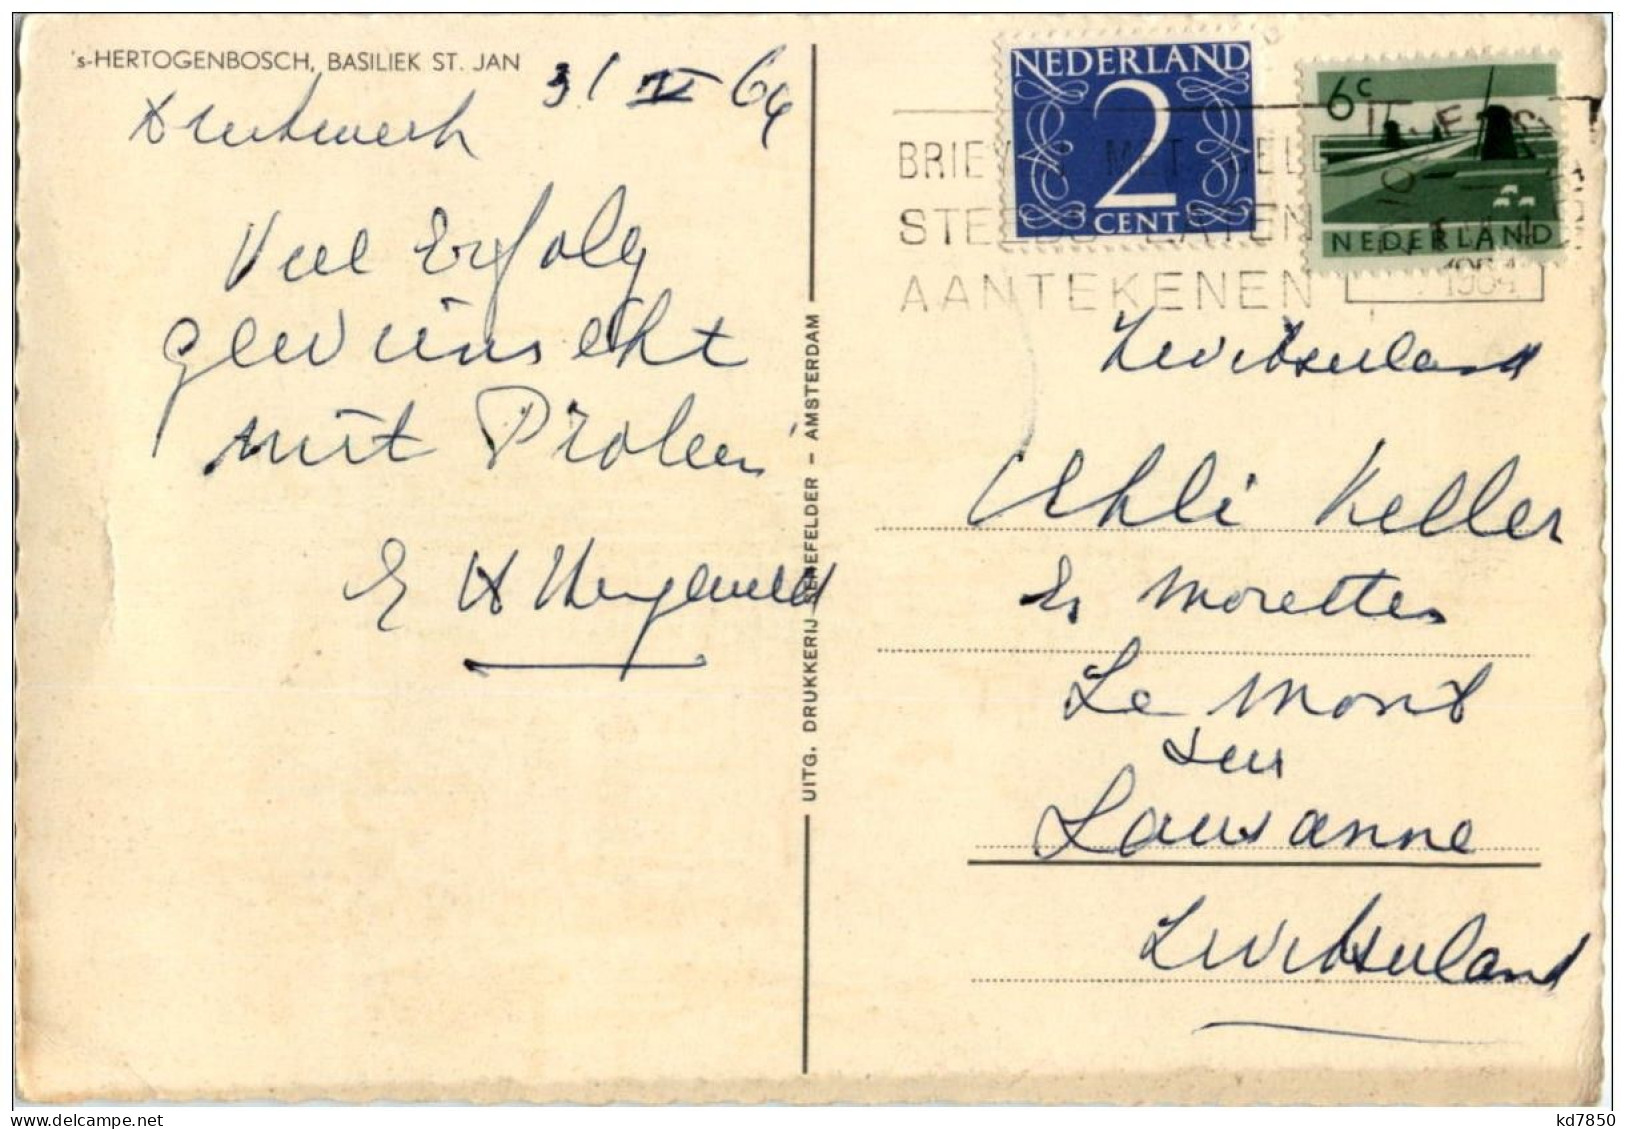 's-HERTOGENBOSCH, BASILIEK ST. JAN
31 VI 64
Viel Erfolg
gewünscht
mit
E
UITG. DRUKKERIJ SENEFELDER - AMSTERDAM
NEDERLAND
2
CENT
6c
NEDERLAND
STEEDS LATEN
AANTEKENEN
1964
Zwitserland
Uehli Keller
Es Morettes
Le Mont
sur
Lausanne
Zwitserland
delcampe.net
kd7850